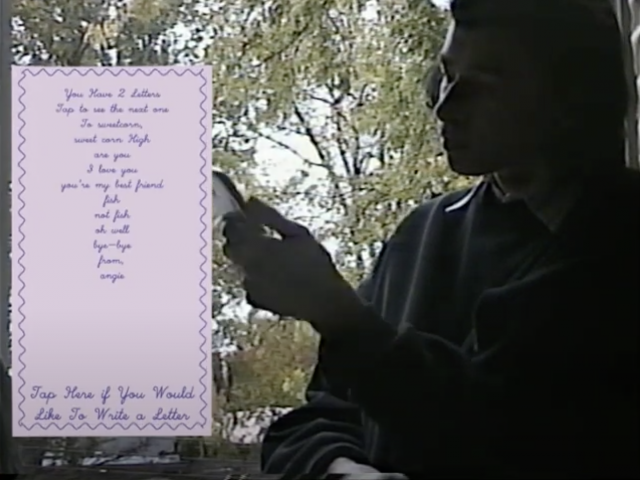 You Have 2 Letters
Tap to see the next one
To sweetcorn,
sweet corn High
are you
I love you
you're my best friend
fish
not fish
oh well
bye-bye
from,
angie
Tap Here if You Would
Like To Write a Letter